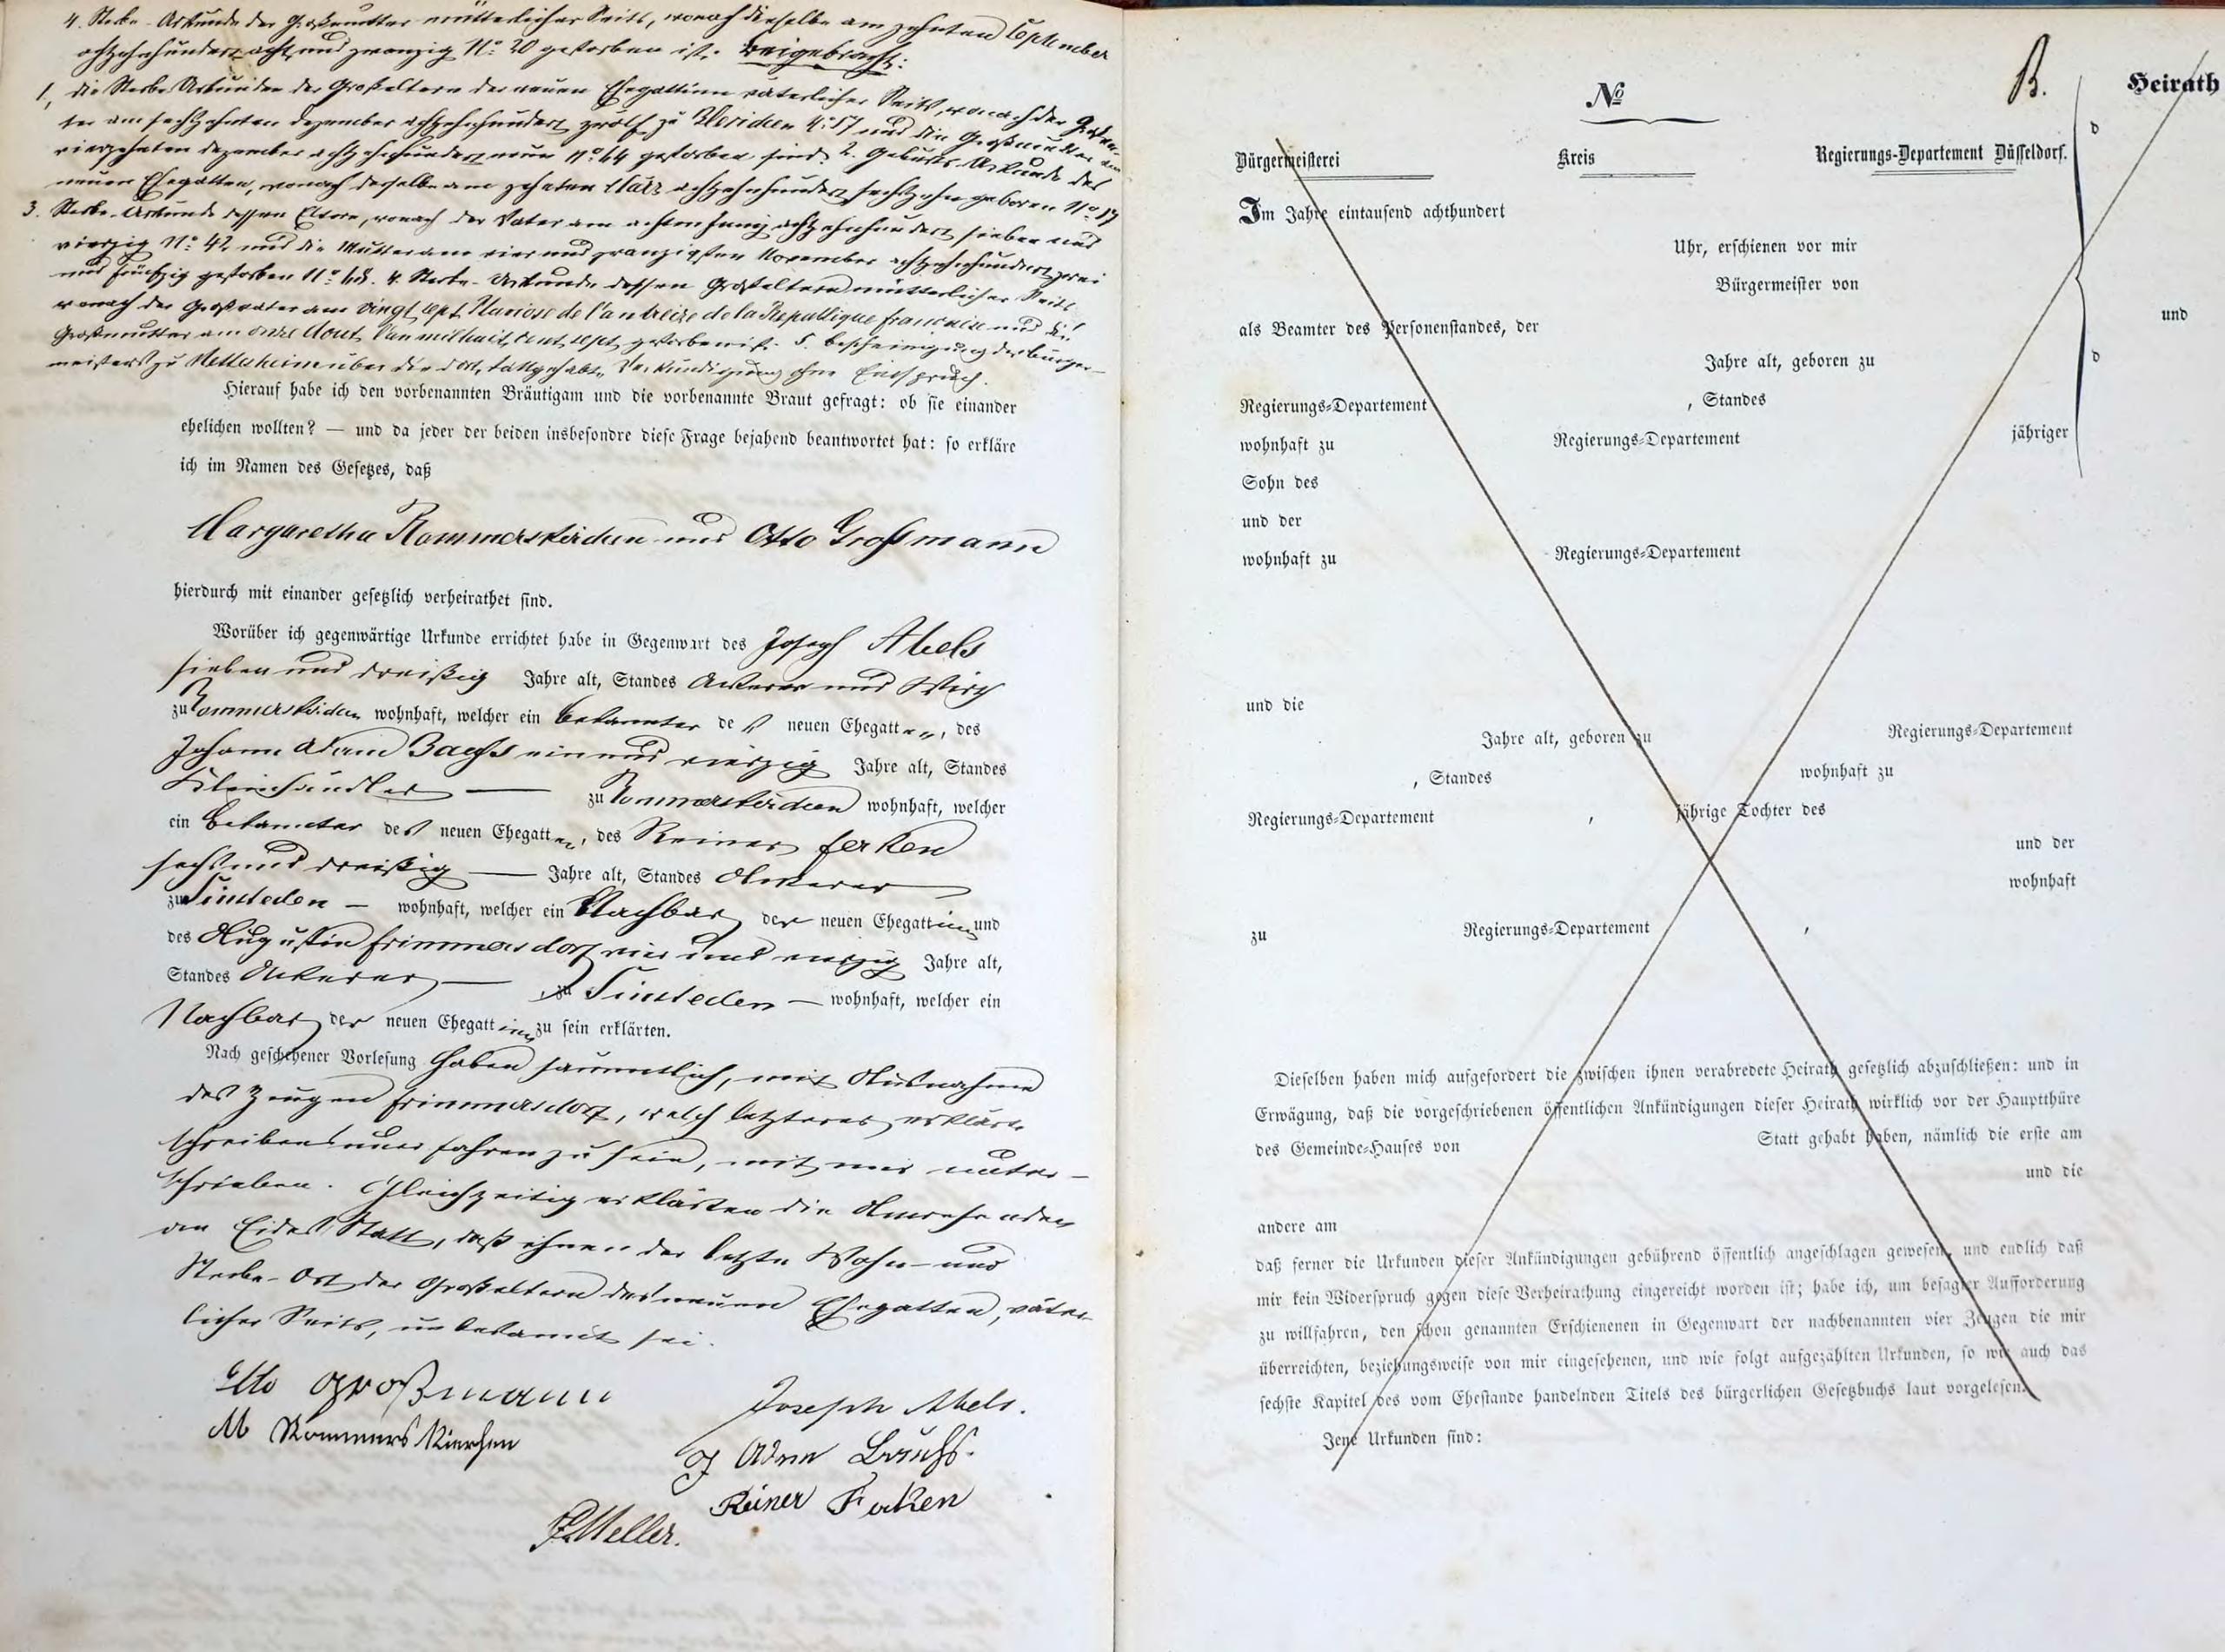 4. Sterbe-Urkunde der Großmutter mütterlicher Seits, wonach dieselbe am zehnten September
achtzehnhundert acht und zwanzig No 20 gestorben ist. beigebracht:
1, die Sterbe Urkunden der Großeltern der neuen Ehegattinn väterlicher Seits, wonach der Großva-
ter am sechszehnten Dezember achtzehnhundert zwölf zu No 57 und die Großmutter am
vierzehnten Dezember achtzehnhundert neun No 64 gestorben sind. 2. Geburts-Urkunde des
neuen Ehegatten, wonach derselbe am zehnten März achtzehnhundert sechszehn geboren No 17
3. Sterbe-Urkunde dessen Eltern, wonach der Vater am achten achtzehnhundert sieben und
vierzig No 42 und die Mutter am vier und zwanzigsten November achtzehnhundert zwei
und fünfzig gestorben No. 4. Sterbe-Urkunde dessen Großeltern mütterlicher Seits
wonach der Großvater am vingt sept de l'an treize de la Republique francaise und die
Großmutter am onze Aout l'an mil huit cent sept gestorben ist. 5. Bescheinigung des Bürger-
meisters zu Nettesheim über die dort stattgehabte Verkündigung ohne Einspruch.
Hierauf habe ich den vorbenannten Bräutigam und die vorbenannte Braut gefragt: ob sie einander
ehelichen wollten? — und da jeder der beiden insbesondre diese Frage bejahend beantwortet hat: so erkläre
ich im Namen des Gesetzes, daß
Margaretha Rommerskirchen und Otto Großmann
hierdurch mit einander gesetzlich verheirathet sind.
Worüber ich gegenwärtige Urkunde errichtet habe in Gegenwart des Joseph Abels
sieben und dreißig Jahre alt, Standes Ackerer und Wirth
zu Rommerskirchen wohnhaft, welcher ein Bekannter des neuen Ehegatten, des
Johann Adam ein und vierzig Jahre alt, Standes
Kleinhändler — zu Rommerskirchen wohnhaft, welcher
ein Bekannter des neuen Ehegatten, des Reiner Ferken
sechs und dreißig — Jahre alt, Standes Ackerer
zu Sinsteden — wohnhaft, welcher ein Nachbar der neuen Ehegattinn und
des Augustin Frimmersdorf vier und vierzig Jahre alt,
Standes Ackerer — , zu Sinsteden — wohnhaft, welcher ein
Nachbar der neuen Ehegattinn zu sein erklärten.
Nach geschehener Vorlesung haben sämmtlich, mit Ausnahme
des Zeugen Frimmersdorf, welch letzterer erklärte
schreibens unerfahren zu sein, mit mir unter-
schrieben. Gleichzeitig erklärten die Anwesenden
an Eides Statt, daß ihnen der letzte Wohn- und
Sterbe-Ort der Großeltern des neuen Ehegatten, väter-
licher Seits, unbekannt sei.
Otto Großmann
Joseph Abels.
M Rommerskirchen
J Adam
Reiner Ferken
B.
No
Heirath
Bürgermeisterei Kreis Regierungs-Departement Düsseldorf.
d
Im Jahre eintausend achthundert
Uhr, erschienen vor mir
Bürgermeister von
und
als Beamter des Personenstandes, der
d
Jahre alt, geboren zu
Regierungs-Departement , Standes
wohnhaft zu Regierungs-Departement jähriger
Sohn des
und der
wohnhaft zu Regierungs-Departement
und die
Jahre alt, geboren zu Regierungs-Departement
, Standes wohnhaft zu
Regierungs-Departement , jährige Tochter des
und der
wohnhaft
zu Regierungs-Departement ,
Dieselben haben mich aufgefordert die zwischen ihnen verabredete Heirath gesetzlich abzuschließen: und in
Erwägung, daß die vorgeschriebenen öffentlichen Ankündigungen dieser Heirath wirklich vor der Hauptthüre
des Gemeinde-Hauses von Statt gehabt haben, nämlich die erste am
und die
andere am
daß ferner die Urkunden dieser Ankündigungen gebührend öffentlich angeschlagen gewesen, und endlich daß
mir kein Widerspruch gegen diese Verheirathung eingereicht worden ist; habe ich, um besagter Aufforderung
zu willfahren, den schon genannten Erschienenen in Gegenwart der nachbenannten vier Zeugen die mir
überreichten, beziehungsweise von mir eingesehenen, und wie folgt aufgezählten Urkunden, so wie auch das
sechste Kapitel des vom Ehestande handelnden Titels des bürgerlichen Gesetzbuchs laut vorgelesen.
Jene Urkunden sind: